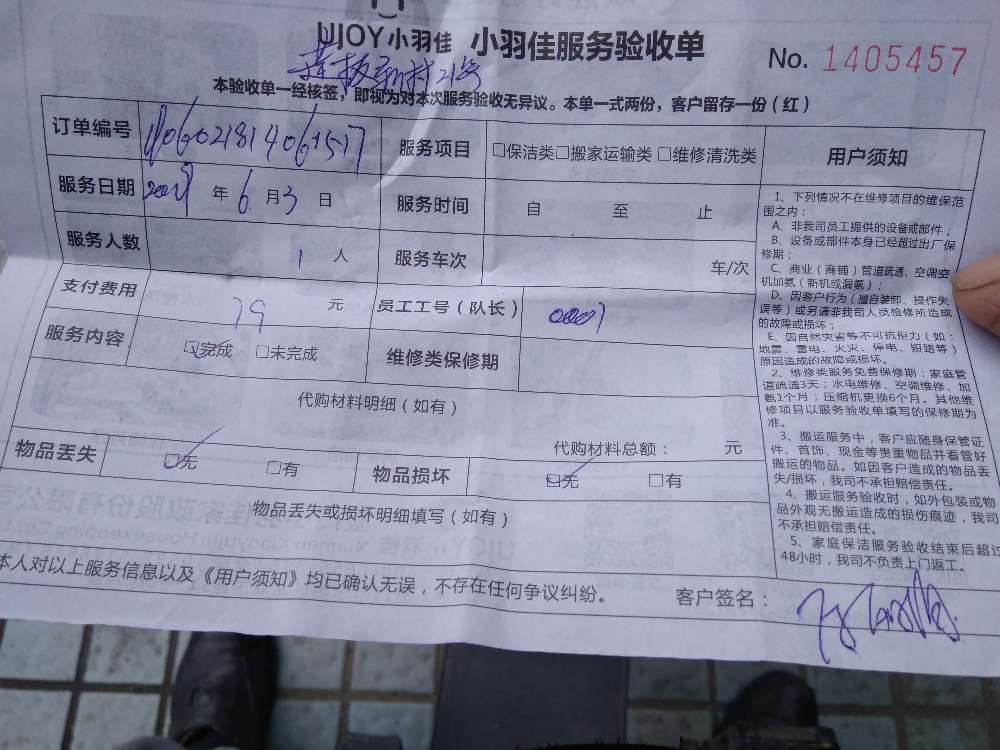 UJOY小羽佳 小羽佳服务验收单 No. 1405457
本验收单一经核签，即视为对本次服务验收无异议。本单一式两份，客户留存一份（红）
订单编号 服务项目 □保洁类□搬家运输类□维修清洗类
服务日期 年 6 月 3 日 服务时间 自 至 止
服务人数 1 人 服务车次 车/次
支付费用 79 元 员工工号（队长）
服务内容 □完成 □未完成 维修类保修期
代购材料明细（如有）
代购材料总额： 元
物品丢失 □无 □有 物品损坏 □无 □有
物品丢失或损坏明细填写（如有）
本人对以上服务信息以及《用户须知》均已确认无误，不存在任何争议纠纷。 客户签名：
用户须知
1、下列情况不在维修项目的维保范
围之内：
A、非我司员工提供的设备或部件；
B、设备或部件本身已经超过出厂保
修期；
C、商业（商铺）管道疏通、空调空
机加氨（新机或漏氨）；
D、因客户行为（擅自装卸、操作失
误等）或另请非我司人员检修所造成
的故障或损坏；
E、因自然灾害等不可抗力（如：
地震、雷电、火灾、停电、短路等）
原因造成的故障或损坏。
2、维修类服务免费保修期：家庭管
道疏通3天；水电维修、空调维修、加
氨1个月；压缩机更换6个月。其他维
修项目以服务验收单填写的保修期为
准。
3、搬运服务中，客户应随身保管证
件、首饰、现金等贵重物品并看管好
搬运的物品。如因客户造成的物品丢
失/损坏，我司不承担赔偿责任。
4、搬运服务验收时，如外包装或物
品外观无搬运造成的损伤痕迹，我司
不承担赔偿责任。
5、家庭保洁服务验收结束后超过
48小时，我司不负责上门返工。